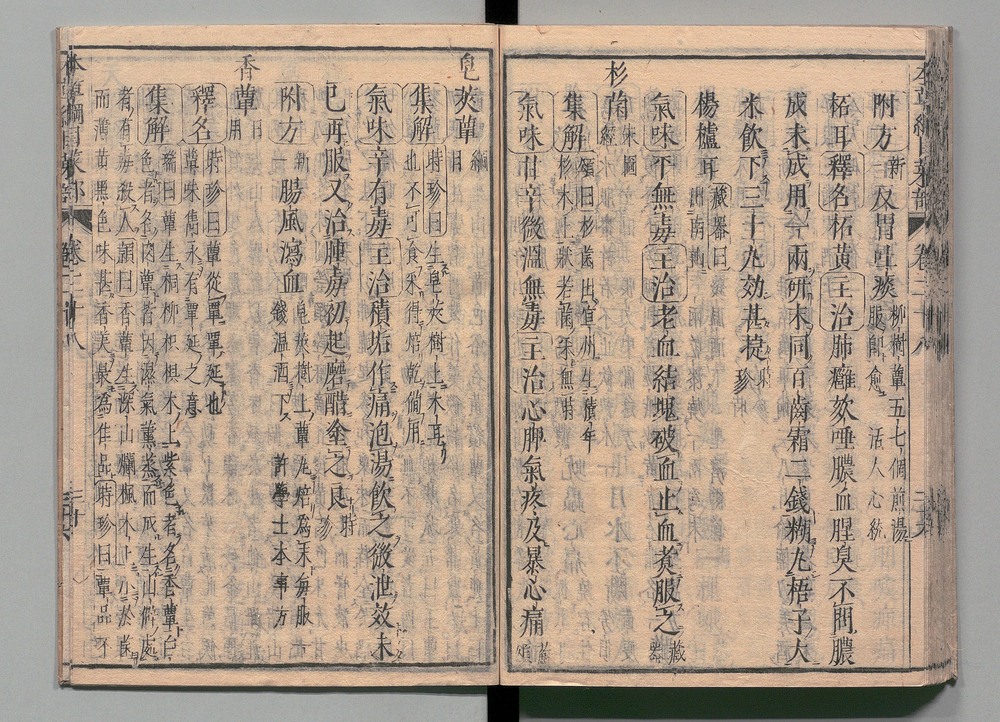 附方 新一 反胃吐痰 柳樹蕈五七個煎湯服即愈 活人心統
柘耳 釋名 柘黃 主治 肺癰欬唾膿血腥臭不問膿
成未成用一兩研末同百齒霜二錢糊丸梧子大
米飲下三十丸效甚捷 時珍
楊櫨耳 藏器曰出南山
氣味 平無毒 主治 老血結塊破血止血煑服之 藏器
杉菌 圖經
集解 頌曰杉菌出宜州生積年杉木上狀若菌采無時
氣味 甘辛微溫無毒 主治 心脾氣疼及暴心痛 蘇頌
皂莢蕈 綱目
集解 時珍曰生皂莢樹上木耳也不可食采得焙乾備用
氣味 辛有毒 主治 積垢作痛泡湯飲之微泄效未
已再服又治腫毒初起磨醋塗之良 時珍
附方 新一 腸風瀉血 皂莢樹上蕈瓦焙為末每服一錢溫酒下 許學士本事方
香蕈 日用
釋名 時珍曰蕈從覃覃延也蕈味雋永有覃延之意
集解 瑞曰蕈生桐柳枳椇木上紫色者名香蕈白色者名肉蕈皆因濕氣薰蒸而成生山僻處
者有毒殺人頴曰香蕈生深山爛楓木上小於菌
而薄黃黑色味甚香美最為佳品時珍曰蕈品不
本草綱目菜部 卷二十八